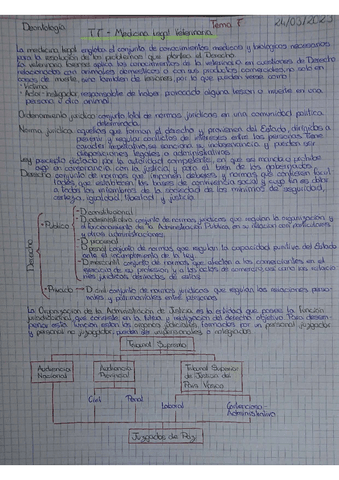 Deontología Tema 7 24/03/2023
T.7 - Medicina Legal Veterinaria
La medicina legal engloba el conjunto de conocimientos médicos y biológicos necesarios
para la resolución de los problemas que plantea el Derecho.
La veterinaria legal aplica los conocimientos de la veterinaria en cuestiones de Derecho
relacionadas con animales domésticos o con sus productos comerciales, no solo en
casos de muerte, sino también de lesiones, por lo que pueden verse como:
- Víctima
- Actor: indagador responsable de haber provocado alguna lesión o muerte en una
persona u otro animal.
Ordenamiento jurídico: conjunto total de normas jurídicas en una comunidad política
determinada.
Norma jurídica: aquellas que forman el derecho y provienen del Estado, dirigidas a
prevenir y regular conflictos de intereses entre las personas. Tiene
carácter imperativo, se sanciona su inobservancia y pueden ser
disposiciones legales o administrativas.
Ley: precepto dictado por la autoridad competente, en que se manda o prohíbe
algo en consonancia con la justicia y para el bien de los gobernados.
Derecho: conjunto de normas que imponen deberes y normas que confieren facul-
tades, que establecen las bases de convivencia social y cuyo fin es dotar
a todos los miembros de la sociedad de los mínimos de seguridad,
certeza, igualdad, libertad y justicia.
Derecho
- Público
- D. constitucional
- D. administrativo: conjunto de normas jurídicas que regulan la organización y
el funcionamiento de la Administración Pública, en su relación con particulares
y otras administraciones.
- D. procesal
- D. penal: conjunto de normas que regulan la capacidad punitiva del Estado
ante el incumplimiento de la ley.
- D. mercantil: conjunto de normas que afectan a los comerciantes en el
ejercicio de su profesión y a los actos de comercio, así como las relacio-
nes jurídicas derivadas de estos.
- Privado → D. civil: conjunto de normas jurídicas que regulan las relaciones perso-
nales y patrimoniales entre personas.
La Organización de la Administración de Justicia es la entidad que posee la función
jurisdiccional, que consiste en la tutela y realización del derecho objetivo. Para desem-
peñar esta función están los órganos judiciales, formados por un personal juzgador
y personal no juzgador; pueden ser unipersonales o colegiados.
Tribunal Supremo
Audiencia Nacional
Audiencia Provincial
Tribunal Superior de Justicia del País Vasco
Civil Penal Laboral Contencioso-
Administrativo
Juzgados de Paz